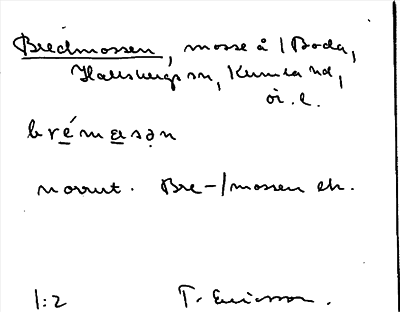 Bredmossen, mosse å 1 Boda,
Hallsbergs sn, Kumla hd,
ör. l.
brémasən
norrut. Bre-/mossen
1:2 T. Ericsson.